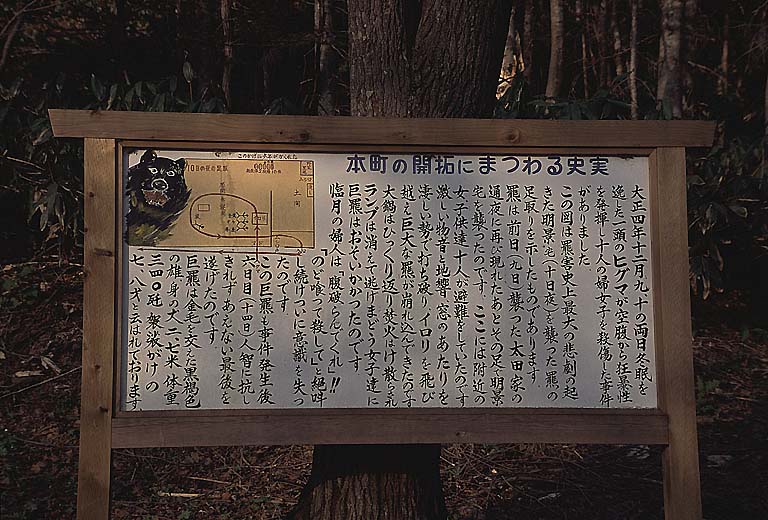 本町の開拓にまつわる史実
大正四年十二月九、十の両日冬眠を
逸した一頭のヒグマが空腹から狂暴性
を発揮し十人の婦女子を殺傷した事件
がありました
この図は羆害史上最大の悲劇の起
きた明景宅(十日夜)を襲った羆の
足取りを示したものであります
羆は前日(九日)襲った太田家の
通夜に再び現れたあとその足で明景
宅を襲ったのです。ここには附近の
女子供達十人が避難をしていたのです
激しい物音と地響、窓のあたりを
凄じい勢で打ち破りイロリを飛び
越え巨大な羆が崩れ込んできたのです
大鍋はひっくり返り焚火はけ散らされ
ランプは消えて逃げまどう女子達に
巨羆はおそいかかったのです
臨月の婦人は「腹破らんでくれ」!!
のど喰って殺して」と絶叫
し続けついに意識を失っ
たのです
この巨羆も事件発生後
六日目(十四日)人智に抗し
きれずあえない最後を
遂げたのです
巨羆は金毛を交えた黒褐色
の雄身の丈二.七米体重
三四〇瓩袈裟がけの
七、八才と云はれております